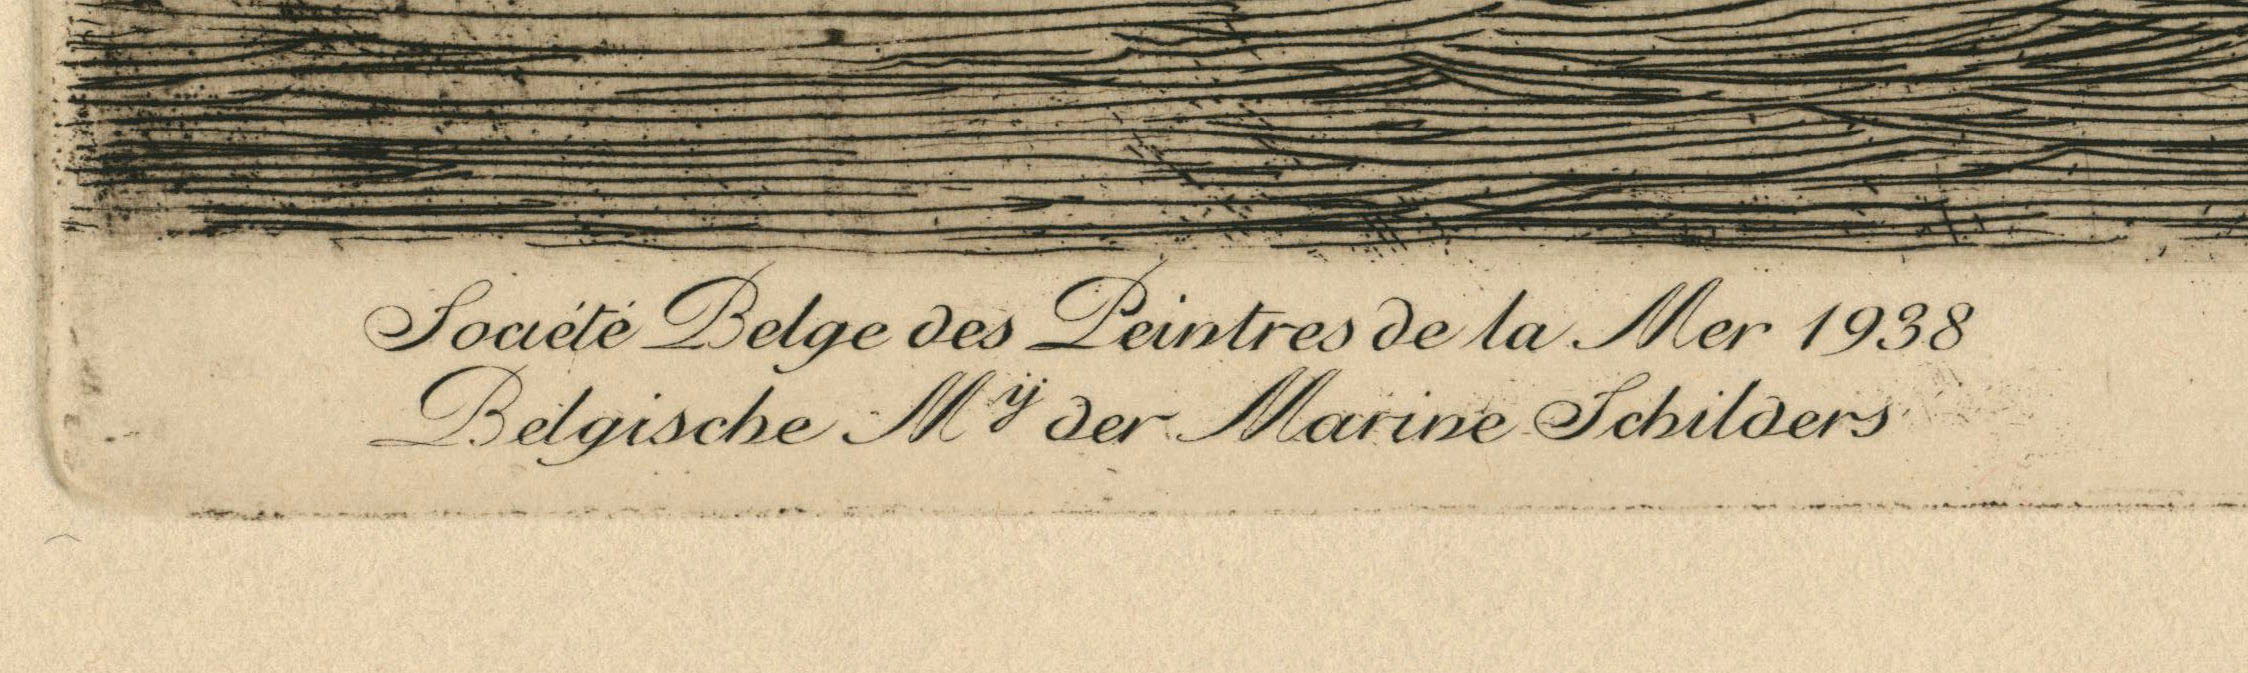 Société Belge des Peintres de la Mer 1938
Belgische Mij der Marine Schilders